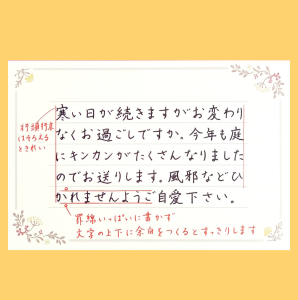 寒い日が続きますがお変わり
なくお過ごしですか。今年も庭
にキンカンがたくさんなりました
のでお送りします。風邪などひ
かれませんようご自愛下さい。
行頭行末
はそろえる
ときれい
罫線いっぱいに書かず
文字の上下に余白をつくるとすっきりします